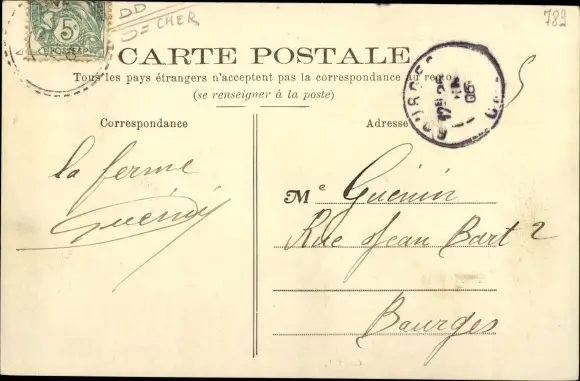 5
POSTES
DD
S= CHER
789
CARTE POSTALE
Tous les pays étrangers n'acceptent pas la correspondance au recto
(se renseigner à la poste)
BOURGES
17 25
06
5
Correspondance
Adresse
la ferme
Guénin
Me Guénin
Rue Jean Bart 2
Bourges